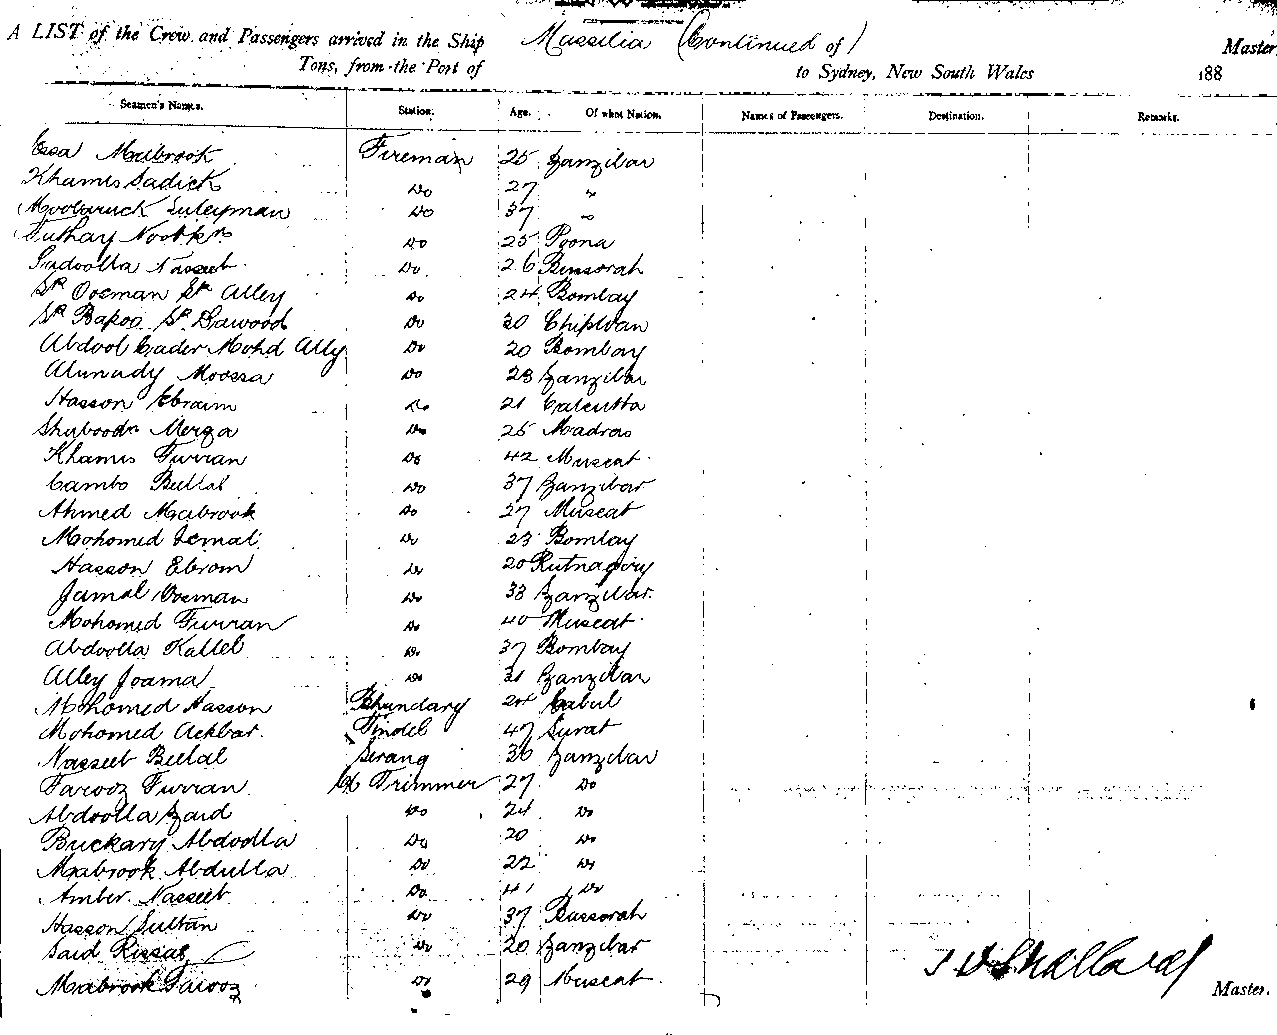 A LIST of the Crew and Passengers arrived in the Ship Massilia (Continued of) Master,
Tons, from the Port of to Sydney, New South Wales 188
Seamen's Names. Station. Age. Of what Nation. Names of Passengers. Destination. Remarks.
Essa Mabrook Fireman 25 Zanzibar
Khamis Sadick Do 27 "
Moobaruck Suleyman Do 37 "
Do 25 Poona
Sadoolla Nasseeb Do 26 Bussorah
Sk Oosman Sk Alley Do 24 Bombay
Sk Bapoo Sk Dawood Do 30 Chiploan
Abdool Cader Mohd Ally Do 20 Bombay
Moossa Do 23 Zanzibar
Hasson Ebraim Do 21 Calcutta
Merza Do 25 Madras
Khamis Furran Do 42 Muscat
Cambo Bullal Do 37 Zanzibar
Ahmed Mabrook Do 27 Muscat
Mohomed Ismal Do 23 Bombay
Hasson Ebrom Do 20 Rutnagiry
Jamal Oosman Do 33 Zanzibar.
Mohomed Furran Do 40 Muscat
Abdoolla Kallel Do 37 Bombay
Alley Joama Do 31 Zanzibar
Mohomed Hasson Bhundary 24 Cabul
Mohomed Ackbar. Tindel 47 Surat
Nasseeb Bellal Serang 36 Zanzibar
Farooz Furran Trimmer 27 Do
Abdoolla Zaid Do 24 Do
Buckary Abdoolla Do 20 Do
Mabrook Abdulla Do 22 Do
Amber Nasseeb Do 41 Do
Hasson Sultan Do 37 Bussorah
Said Do 20 Zanzibar
Mabrook Farooz Do 29 Muscat
Master.